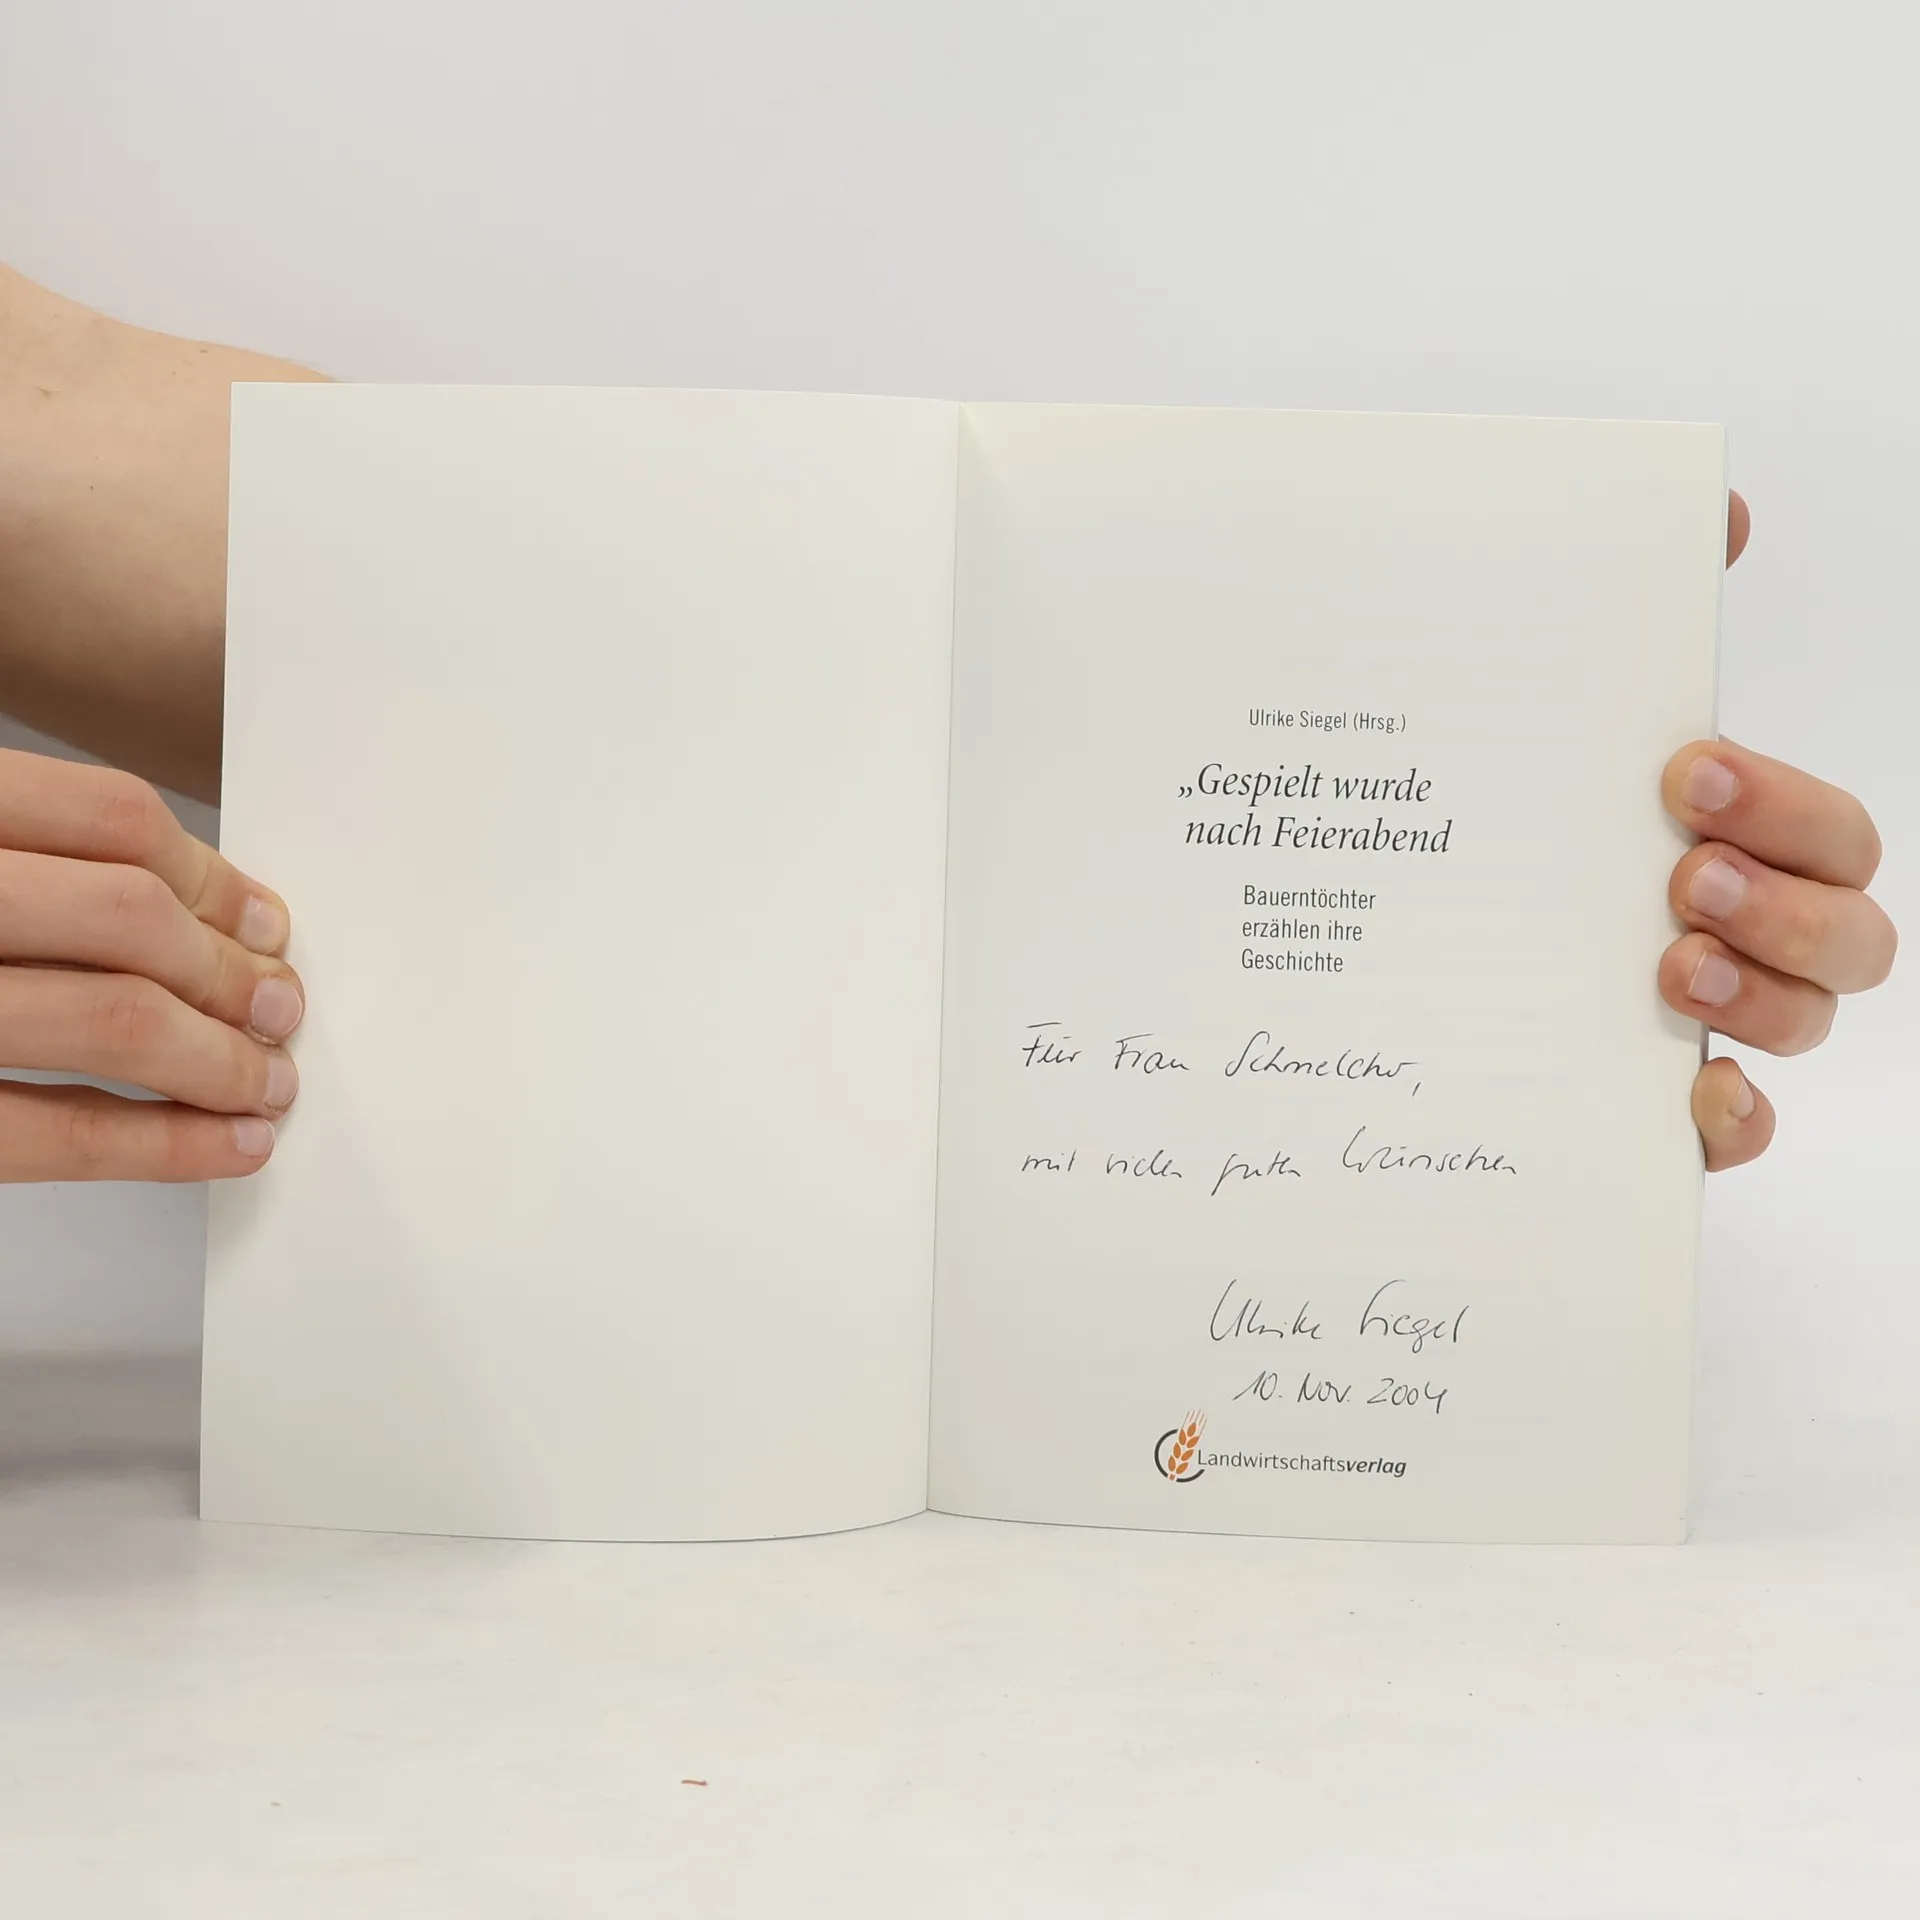 Ulrike Siegel (Hrsg.)
„Gespielt wurde
nach Feierabend
Bauerntöchter
erzählen ihre
Geschichte
Für Frau Schmelcher,
mit vielen guten Wünschen
Ulrike Siegel
10. Nov. 2004
Landwirtschaftsverlag